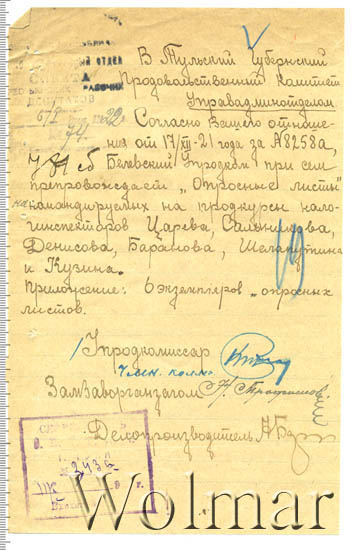 В Тульский Губернский
Продовольственный Комитет
Управадминотделом
Согласно Вашего отноше-
ния от 17/XII-21 года за А8258а,
Белевский Упродком при сем
препровождает „Опросные листы"
командируемых на продкурсы нало-
гинспекторов Царева, Сальникова,
Денисова, Баранова, Шелапутина
и Кузина.
Приложение: 6 экземпляров „опросных
листов.
Упродкомиссар
Член. колле
Замзаворганзагом Н. Трофимов
Делопроизводитель
ОТДЕЛ
РАБОЧИХ
ДЕПУТАТОВ
Wolmar